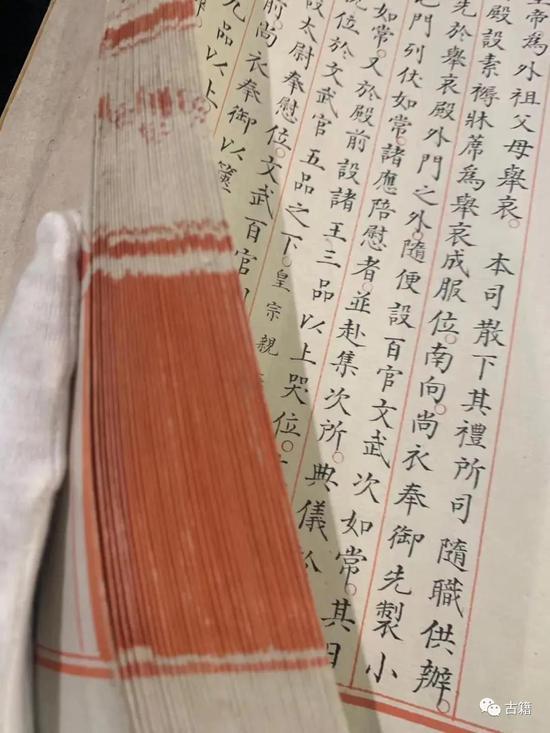 帝為外祖父母舉哀。 本司散下其禮所司隨職供辦。
殿設素褥牀席為舉哀成服位。南向。尚衣奉御先製小
先於舉哀殿外門之外。隨便設百官文武次如常。其日
屯門列伏如常。諸應陪慰者。並赴集次所。典儀於
如常。又於殿前設諸王三品以上哭位。
位於文武官五品之下。皇宗親
設太尉奉慰位。文武百官
前。尚衣奉御以篋
九品以上
古籍